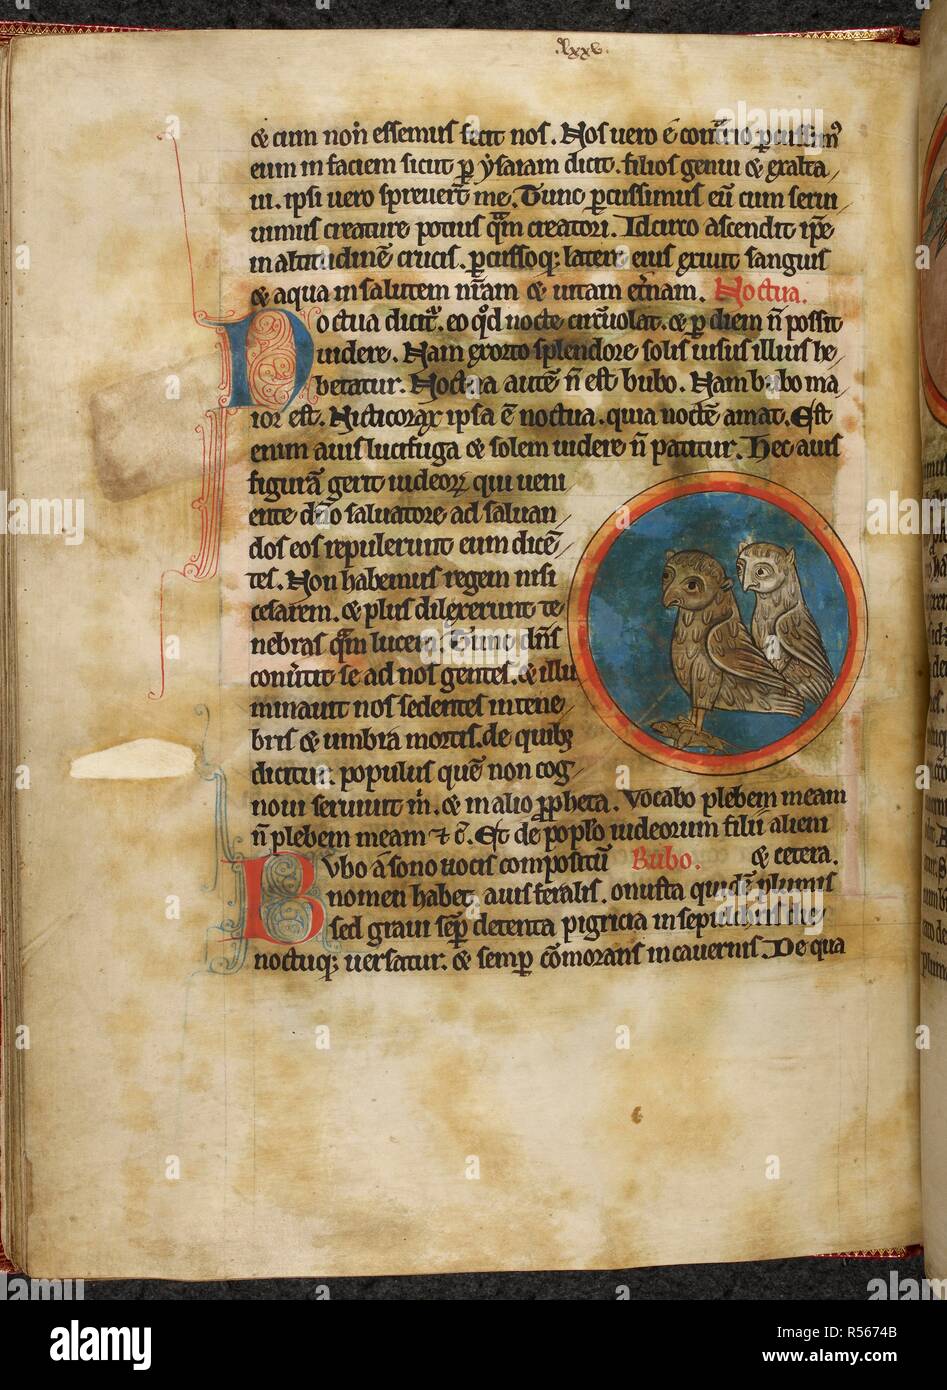 lxxv.
& cum non essemus fecit nos. Nos uero e cont͛rio ꝑcussim᷒
eum in faciem sicut ꝑ ysaiam dicit. filios genui & exalta
ui. ipsi uero spreuer̄t me. Tunc ꝑcussimus eū cum serui
uimus creature potius q̄m creatori. Idcirco ascendit ip̄e
in altitudinē crucis. ꝑcussoq; latere eius exiuit sanguis
& aqua in salutem nr̄am & uitam et͛nam. Noctua.
Noctua dicit᷑. eo q͛d nocte circūuolat. & ꝑ diem n̄ possit
uidere. Nam exorto splendore solis uisus illius he
betatur. Noctua autē n̄ est bubo. Nam bubo ma
ior est. Nicticorax ipsa ē noctua. quia noctē amat. Est
enim auis lucifuga & solem uidere n̄ patitur. Hec auis
figurā gerit iudeoꝝ qui ueni
ente dn̄o saluatore ad saluan
dos eos repulerunt eum dicē
tes. Non habemus regem nisi
cesarem. & plus dilexerunt te
nebras q̄m lucem. Tunc dn̄s
conu͛tit se ad nos gentes. & illu
minauit nos sedentes in tene
bris & umbra mortis. de quibꝫ
dicitur. populus quē non cog
noui seruiuit m͛. & in alio ꝓpheta. Vocabo plebem meam
n̄ plebem meam ⁊ c̄. Et de pop̄lo iudeorum filii alieni
Bubo a sono uocis compositū Bubo. & cetera.
nomen habet. auis feralis. onusta quidē plumis
sed graui sēp detenta pigricia in sepulchris die
noctuq; uersatur. & semꝑ cōmorans in cauernis. De qua
alamy stock photo
alamy
Image ID: R5674B
www.alamy.com